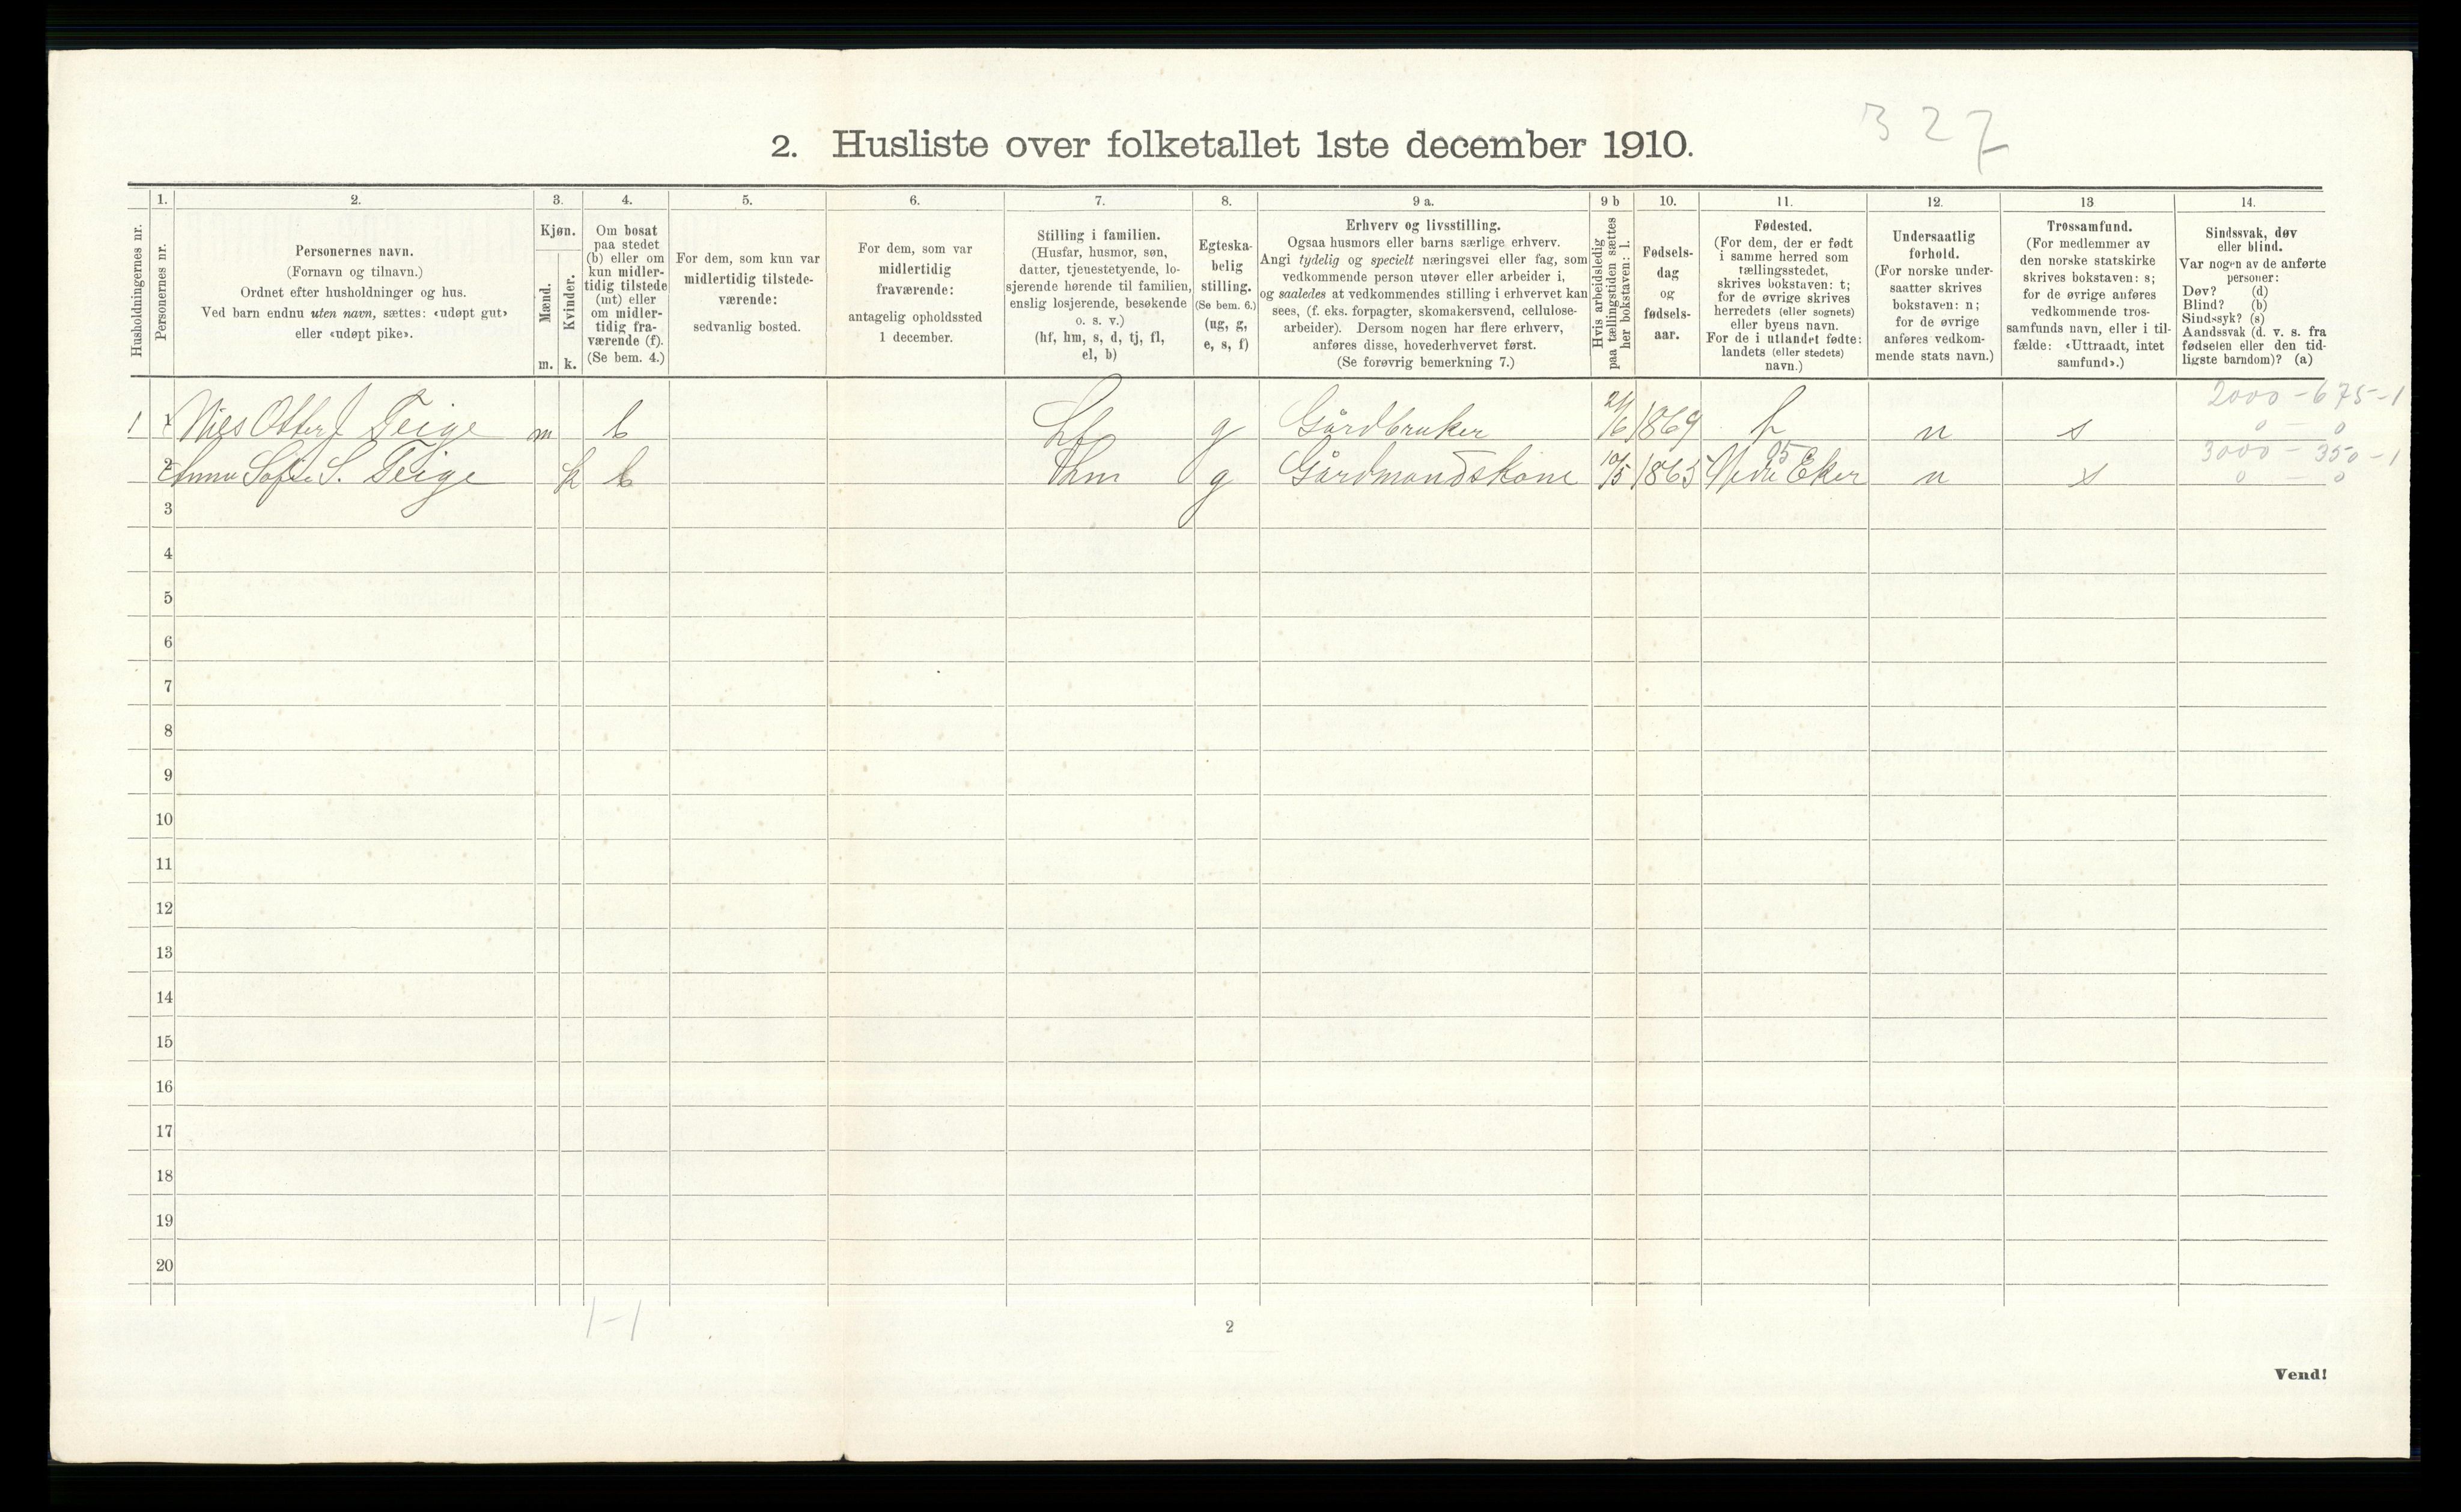 327
2. Husliste over folketallet 1ste december 1910.
Husholdningernes nr.
1.
Personernes nr.
2.
Personernes navn.
(Fornavn og tilnavn.)
Ordnet efter husholdninger og hus.
Ved barn endnu uten navn, sættes: «udøpt gut»
eller «udøpt pike».
3.
Kjøn.
Mænd.
m.
Kvinder.
k.
4.
Om bosat
paa stedet
(b) eller om
kun midler-
tidig tilstede
(mt) eller
om midler-
tidig fra-
værende (f).
(Se bem. 4.)
5.
For dem, som kun var
midlertidig tilstede-
værende:
sedvanlig bosted.
6.
For dem, som var
midlertidig
fraværende:
antagelig opholdssted
1 december.
7.
Stilling i familien.
(Husfar, husmor, søn,
datter, tjenestetyende, lo-
sjerende hørende til familien,
enslig losjerende, besøkende
o. s. v.)
(hf, hm, s, d, tj, fl,
el, b)
8.
Egteska-
belig
stilling.
(Se bem. 6.)
(ug, g,
e, s, f)
9 a.
Erhverv og livsstilling.
Ogsaa husmors eller barns særlige erhverv.
Angi tydelig og specielt næringsvei eller fag, som
vedkommende person utøver eller arbeider i,
og saaledes at vedkommendes stilling i erhvervet kan
sees, (f. eks. forpagter, skomakersvend, cellulose-
arbeider). Dersom nogen har flere erhverv,
anføres disse, hovederhvervet først.
(Se forøvrig bemerkning 7.)
9 b
Hvis arbeidsledig
paa tællingstiden sættes
her bokstaven: l.
10.
Fødsels-
dag
og
fødsels-
aar.
11.
Fødested.
(For dem, der er født
i samme herred som
tællingsstedet,
skrives bokstaven: t;
for de øvrige skrives
herredets (eller sognets)
eller byens navn.
For de i utlandet fødte:
landets (eller stedets)
navn.)
12.
Undersaatlig
forhold.
(For norske under-
saatter skrives
bokstaven: n;
for de øvrige
anføres vedkom-
mende stats navn.)
13
Trossamfund.
(For medlemmer av
den norske statskirke
skrives bokstaven: s;
for de øvrige anføres
vedkommende tros-
samfunds navn, eller i til-
fælde: «Uttraadt, intet
samfund».)
14.
Sindssvak, døv
eller blind.
Var nogen av de anførte
personer:
Døv? (d)
Blind? (b)
Sindssyk? (s)
Aandssvak (d. v. s. fra
fødselen eller den tid-
ligste barndom)? (a)
2000 - 675 - 1
0 - 0
1 1 Niels Otter J Teige m b hf g Gårdbruker 21/6 1869 t n s
3000 - 350 - 1
0 - 0
2 Anna Sofie S. Teige k b hm g Gårdmandskone 10/5 1865 Nedre Eker n s
05
3
4
5
6
7
8
9
10
11
12
13
14
15
16
17
18
19
20
1-1
2
Vend!